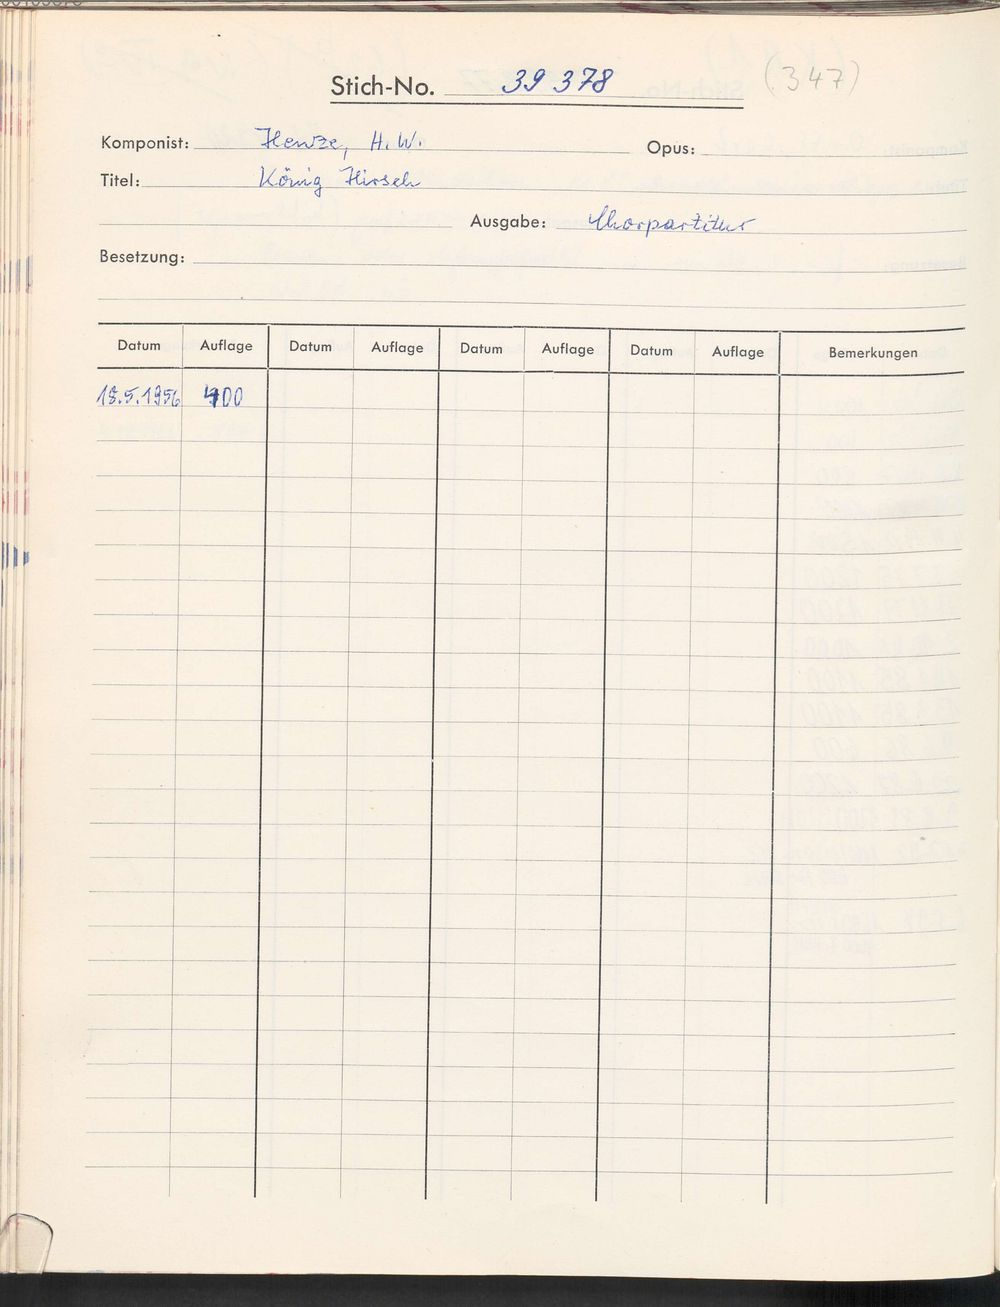 Stich-No. 39 378 (347)
Komponist: Henze, H.W. Opus:
Titel: König Hirsch
Ausgabe: Chorpartitur
Besetzung:
Datum Auflage Datum Auflage Datum Auflage Datum Auflage Bemerkungen
18.5.1956 400